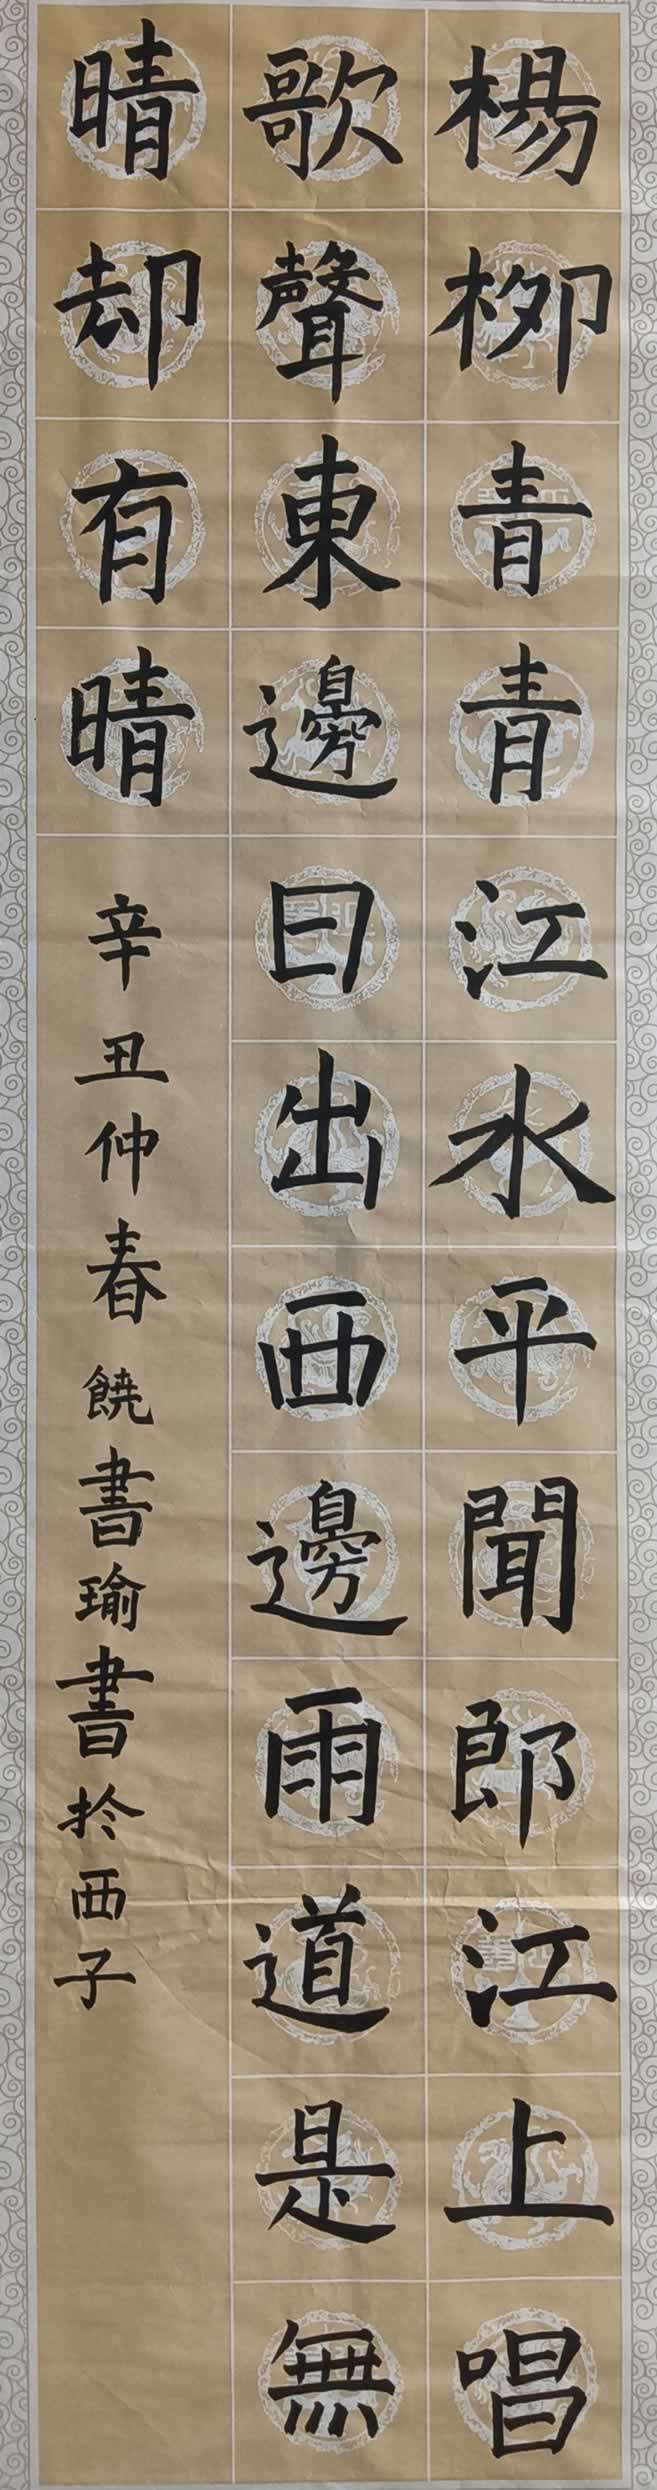 楊柳青青江水平聞郎江上唱
歌聲東邊日出西邊雨道是無
晴却有晴
辛丑仲春饒書瑜書於西子